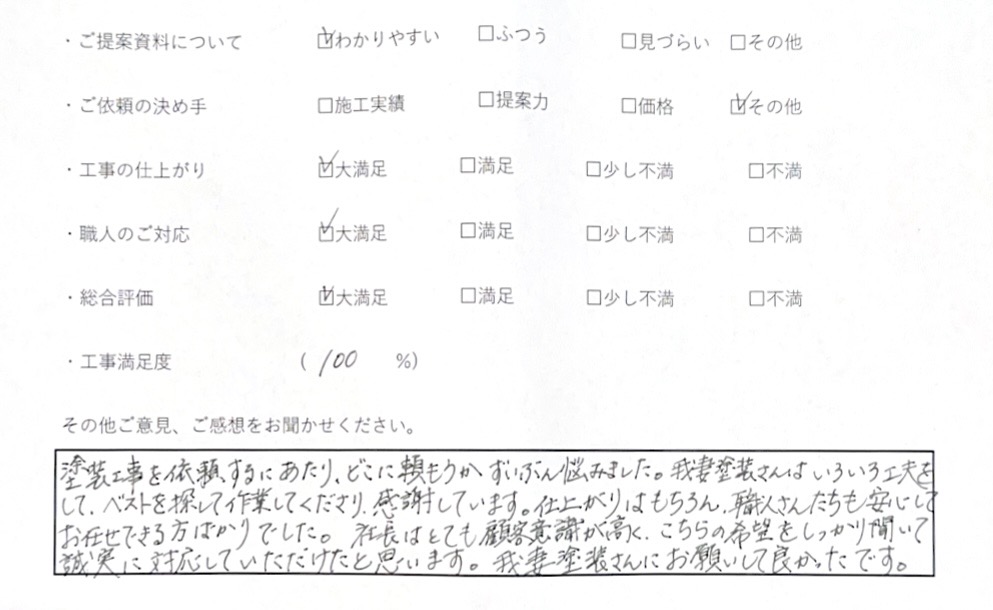 ・ご提案資料について ☑わかりやすい □ふつう □見づらい □その他
・ご依頼の決め手 □施工実績 □提案力 □価格 ☑その他
・工事の仕上がり ☑大満足 □満足 □少し不満 □不満
・職人のご対応 ☑大満足 □満足 □少し不満 □不満
・総合評価 ☑大満足 □満足 □少し不満 □不満
・工事満足度 ( 100 %)
その他ご意見、ご感想をお聞かせください。
塗装工事を依頼するにあたり、どこに頼もうかずいぶん悩みました。我妻塗装さんはいろいろ工夫を
して、ベストを探して作業してくださり、感謝しています。仕上がりはもちろん、職人さんたちも安心して
お任せできる方ばかりでした。 社長はとても顧客意識が高く、こちらの希望をしっかり聞いて
誠実に対応していただけたと思います。我妻塗装さんにお願いして良かったです。